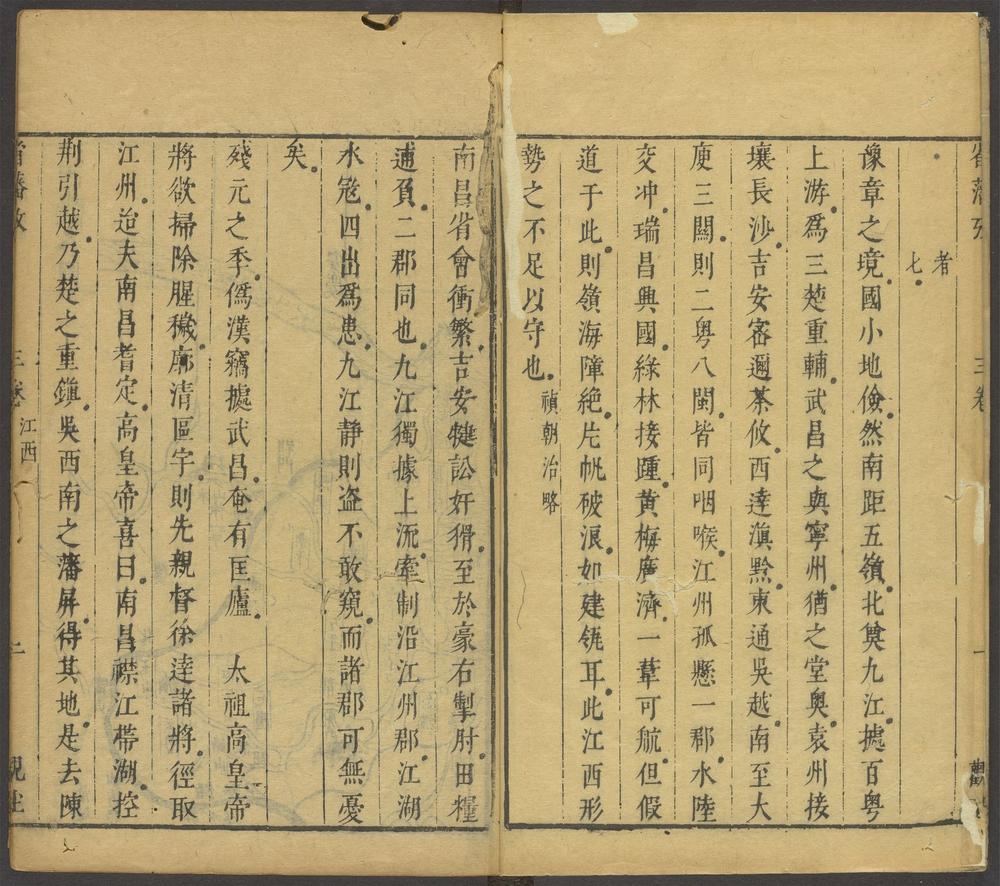 省藩攷 三卷 一
者
七
豫章之境國小地儉然南距五嶺北奠九江據百粤
上游爲三楚重輔武昌之與寧州猶之堂奥袁州接
壤長沙吉安宻邇茶攸西達滇黔東通吳越南至大
庾三關則二粤八閩皆同咽喉江州孤懸一郡水陸
交冲瑞昌興國綠林接踵黄梅廣濟一葦可航但假
道于此則嶺海障絶片帆破浪如建瓴耳此江西形
勢之不足以守也 禎朝治略
南昌省會衝繁吉安犍訟奸猾至於豪右掣肘田糧
逋負二郡同也九江獨據上流牽制沿江州郡江湖
水冦四出爲患九江静則盗不敢窺而諸郡可無憂
矣
殘元之季僞漢竊據武昌奄有匡廬 太祖高皇帝
將欲掃除腥穢廓清區宇則先親督徐逹諸將徑取
江州迨夫南昌耆定高皇帝喜曰南昌襟江帶湖控
荆引越乃楚之重鎭吳西南之藩屏得其地是去陳
省藩攷 三卷 江西 二